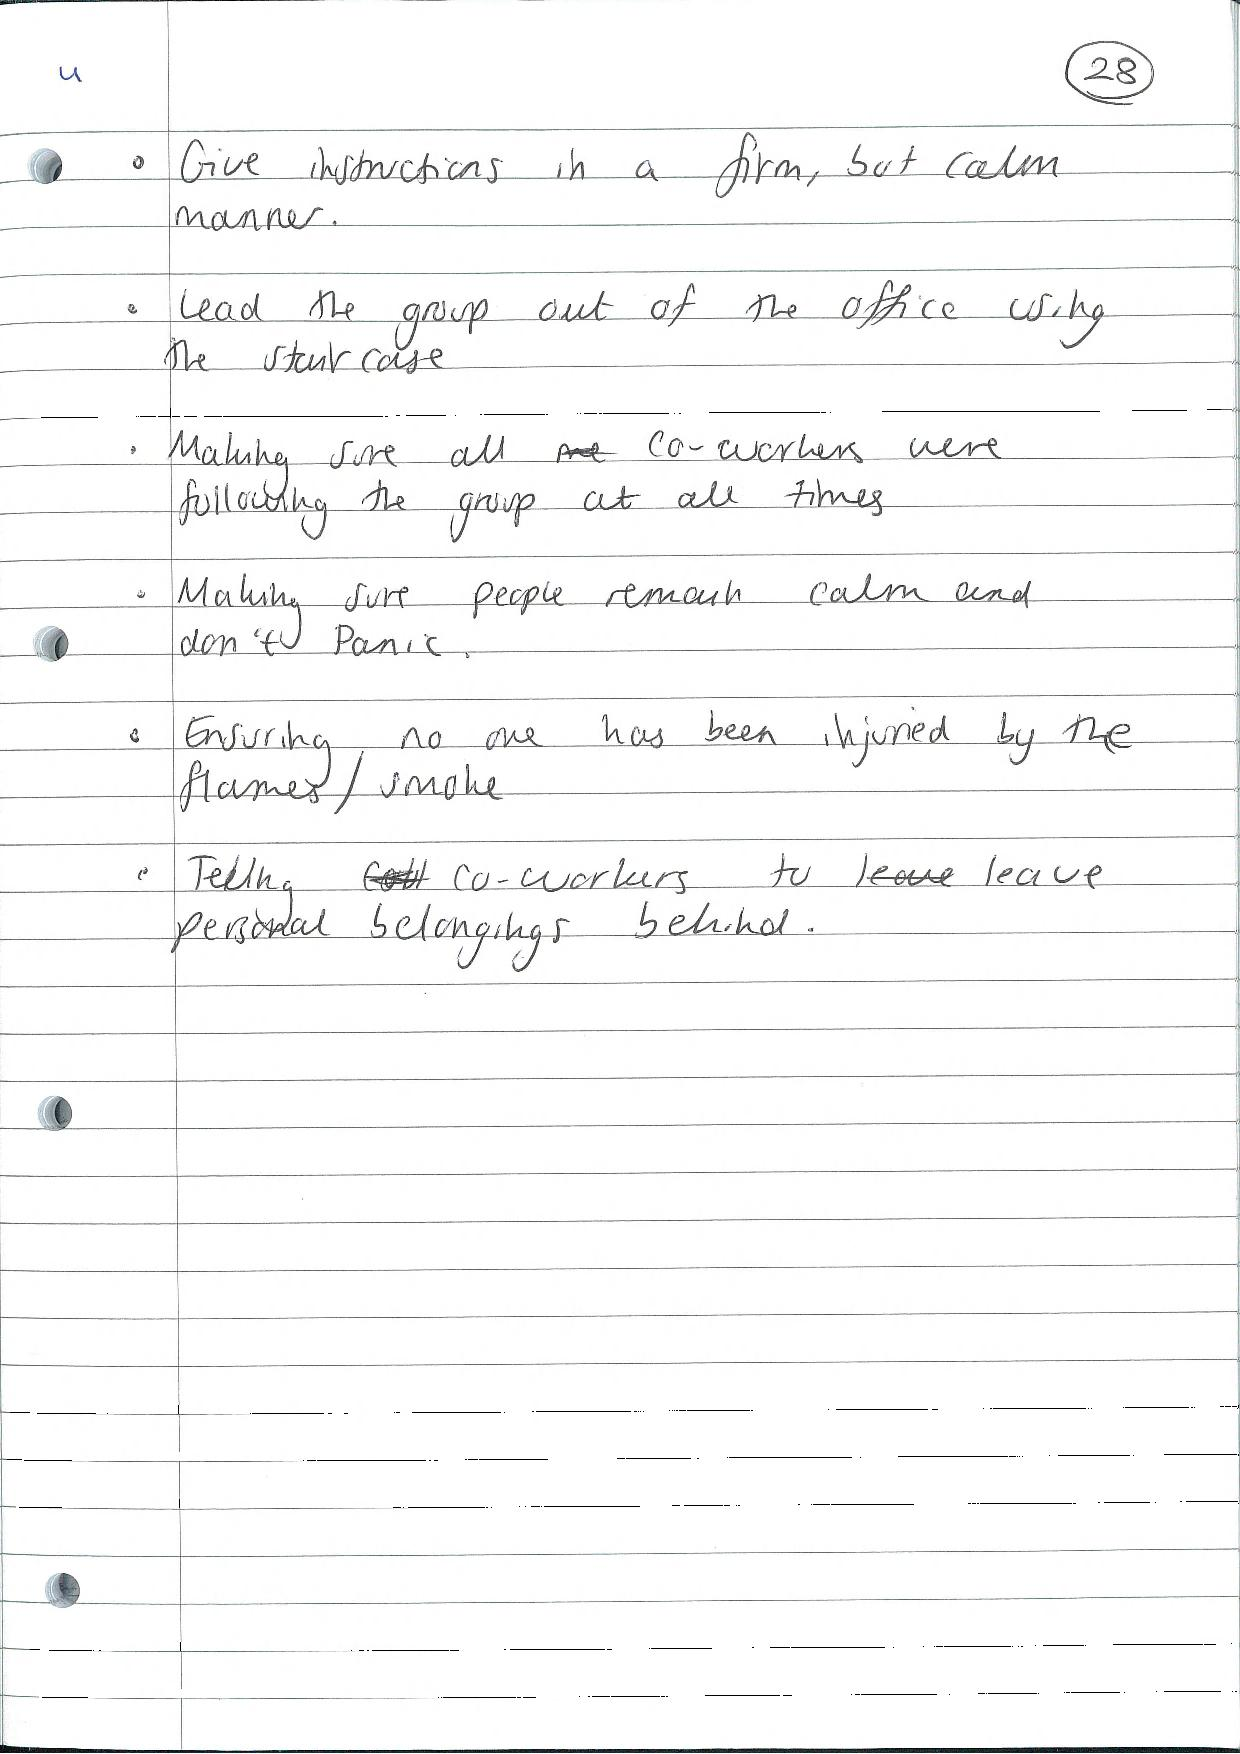 u
28
• Give instructions in a firm, but calm
manner.
• Lead the group out of the office using
the staircase
• Making sure all co-workers were
following the group at all times
• Making sure people remain calm and
don't Panic.
• Ensuring no one has been injuried by the
flames / smoke
• Telling co-workers to leave leave
personal belongings behind.